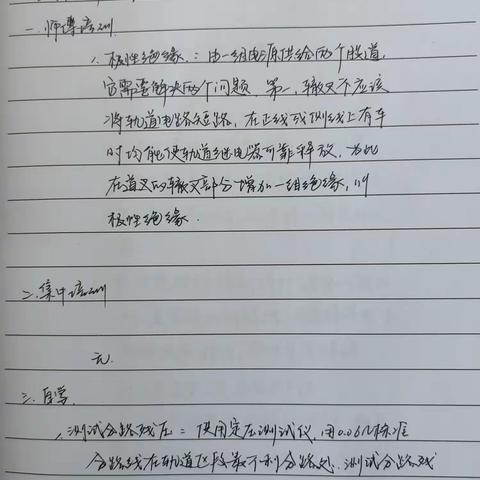 一.师带培训
1.极性绝缘：由一组电源供给两个股道，
它需要解决两个问题，第一，辙叉不应该
将轨道电路短路，在正线或侧线上有车
时均能使轨道继电器可靠释放，为此
在道叉的辙叉部分增加一组绝缘，叫
极性绝缘.
二.集中培训
无.
三.自学
1.测试分路残压：使用定压测试仪，用0.06Ω标准
分路线在轨道区段最不利分路处，测试分路残